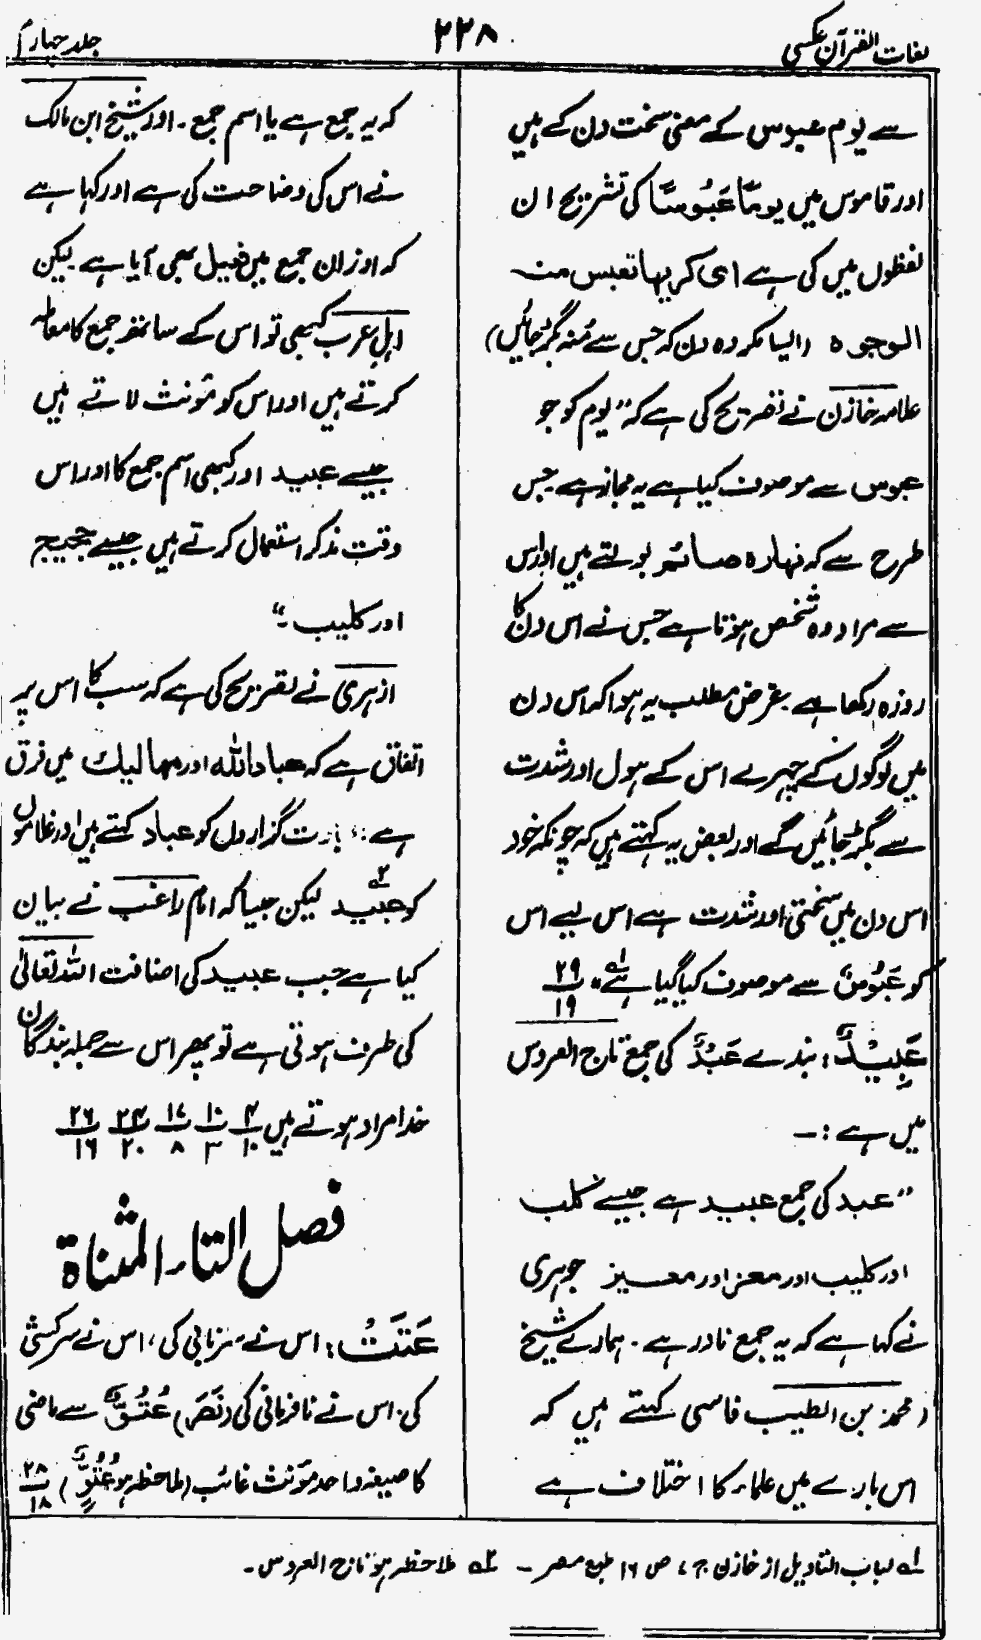 لغات القرآن عکسی
۲۲۸
جلد چہارم
سے یوم عبوس کے معنی سخت دن کے ہیں
اور قاموس میں یومًا عَبُوسًا کی تشریح ان
لفظوں میں کی ہے ای کریہا تعبس منہ
الوجوہ (ایسا مکروہ دن کہ جس سے مُنہ بگڑ جائیں)
علامہ خازن نے تصریح کی ہے کہ "یوم کو جو
عبوس سے موصوف کیا ہے یہ مجاز ہے جس
طرح سے کہ نہارہ صائم بولتے ہیں اور اس
سے مراد وہ شخص ہوتا ہے جس نے اس دن کا
روزہ رکھا ہے بغرض مطلب یہ ہوا کہ اس دن
میں لوگوں کے چہرے اس کے ہول اور شدت
سے بگڑ جائیں گے اور بعض یہ کہتے ہیں کہ چونکہ خود
اس دن میں سختی اور شدت ہے اس لیے اس
کو عَبُوسٌ سے موصوف کیا گیا ہے" ۱؎ ۲۹/۱۹
عَبِیْدٌ: بندے عَبْدٌ کی جمع تاج العروس
میں ہے:—
"عبد کی جمع عبید ہے جیسے کلب
اور کلیب اور معز اور معیز جوہری
نے کہا ہے کہ یہ جمع نادر ہے۔ ہمارے شیخ
(محمد بن الطیب فاسی کہتے ہیں کہ
اس بارے میں علماء کا اختلاف ہے
کہ یہ جمع ہے یا اسم جمع۔ اور شیخ ابن مالک
نے اس کی وضاحت کی ہے اور کہا ہے
کہ اوزان جمع میں فعیل بھی آیا ہے لیکن
اہل عرب کبھی تو اس کے ساتھ جمع کا معاملہ
کرتے ہیں اور اس کو مؤنث لاتے ہیں
جیسے عبید اور کبھی اسم جمع کا اور اس
وقت مذکر استعمال کرتے ہیں جیسے حجیج
اور کلیب۔"
ازہری نے تصریح کی ہے کہ سب کا اس پر
اتفاق ہے کہ عباداللہ اور ممالیک میں فرق
ہے: عبادت گزاروں کو عباد کہتے ہیں اور غلاموں
کو عبید ۲؎ لیکن جیسا کہ امام راغب نے بیان
کیا ہے جب عبید کی اضافت اللہ تعالیٰ
کی طرف ہوتی ہے تو پھر اس سے جملہ بندگان
خدا مراد ہوتے ہیں ۴/۱۰ ۱۰/۳ ۱۷/۸ ۲۴/۲۰ ۲۶/۱۶
فصل التاء المثناة
عَتَتْ: اس نے سرتابی کی، اس نے سرکشی
کی، اس نے نافرمانی کی (نَصَرَ) عُتُوٌّ سے ماضی
کا صیغہ واحد مؤنث غائب (ملاحظہ ہو عُتُوٌّ) ۲۸/۱۸
۱؎ لباب التاویل از خازن ج ۷ ص ۱۶ طبع مصر۔ ۲؎ ملاحظہ ہو تاج العروس۔